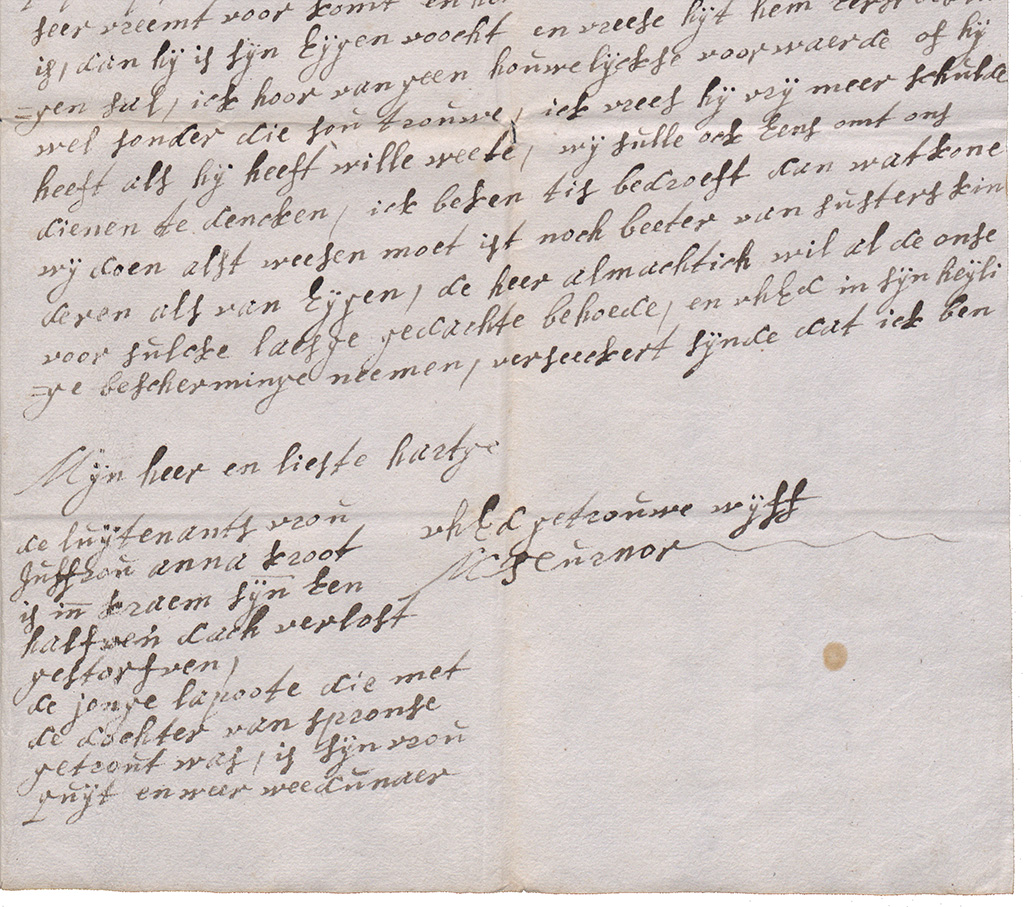 seer vreemt voor komt en
is, dan hÿ is sÿn Eÿgen voocht en vreese hÿt hem
=gen sal, ick hoor van geen houwelÿckse voorwaerde of hÿ
wel sonder die sou trouwe, ick vrees hÿ vrÿ meer schulde
heeft als hÿ heeft wille weete, wÿ sulle ock Eens omt ons
dienen te dencken, ick beken tis bedroeft dan wat kone
wÿ doen alst weesen moet ist noch beeter van susters kin
deren als van Eÿgen, de heer almachtich wil al de onse
voor sulcke laesge gedachte behoede, en vhEd in sÿn heÿli
=ge bescherminge neemen, verseeckert sÿnde dat ick ben
Mÿn heer en liefste hartge
vhEd getrouwe wÿff
M Teurnor
de luÿtenants vrou
Juffrou anna kroot
is in kraem sÿn Een
halfven dach verlost
gestorfven,
de jonge lapoote die met
de dochter van spronse
getrout was, is sÿn vrou
quÿt en weer weedunaer